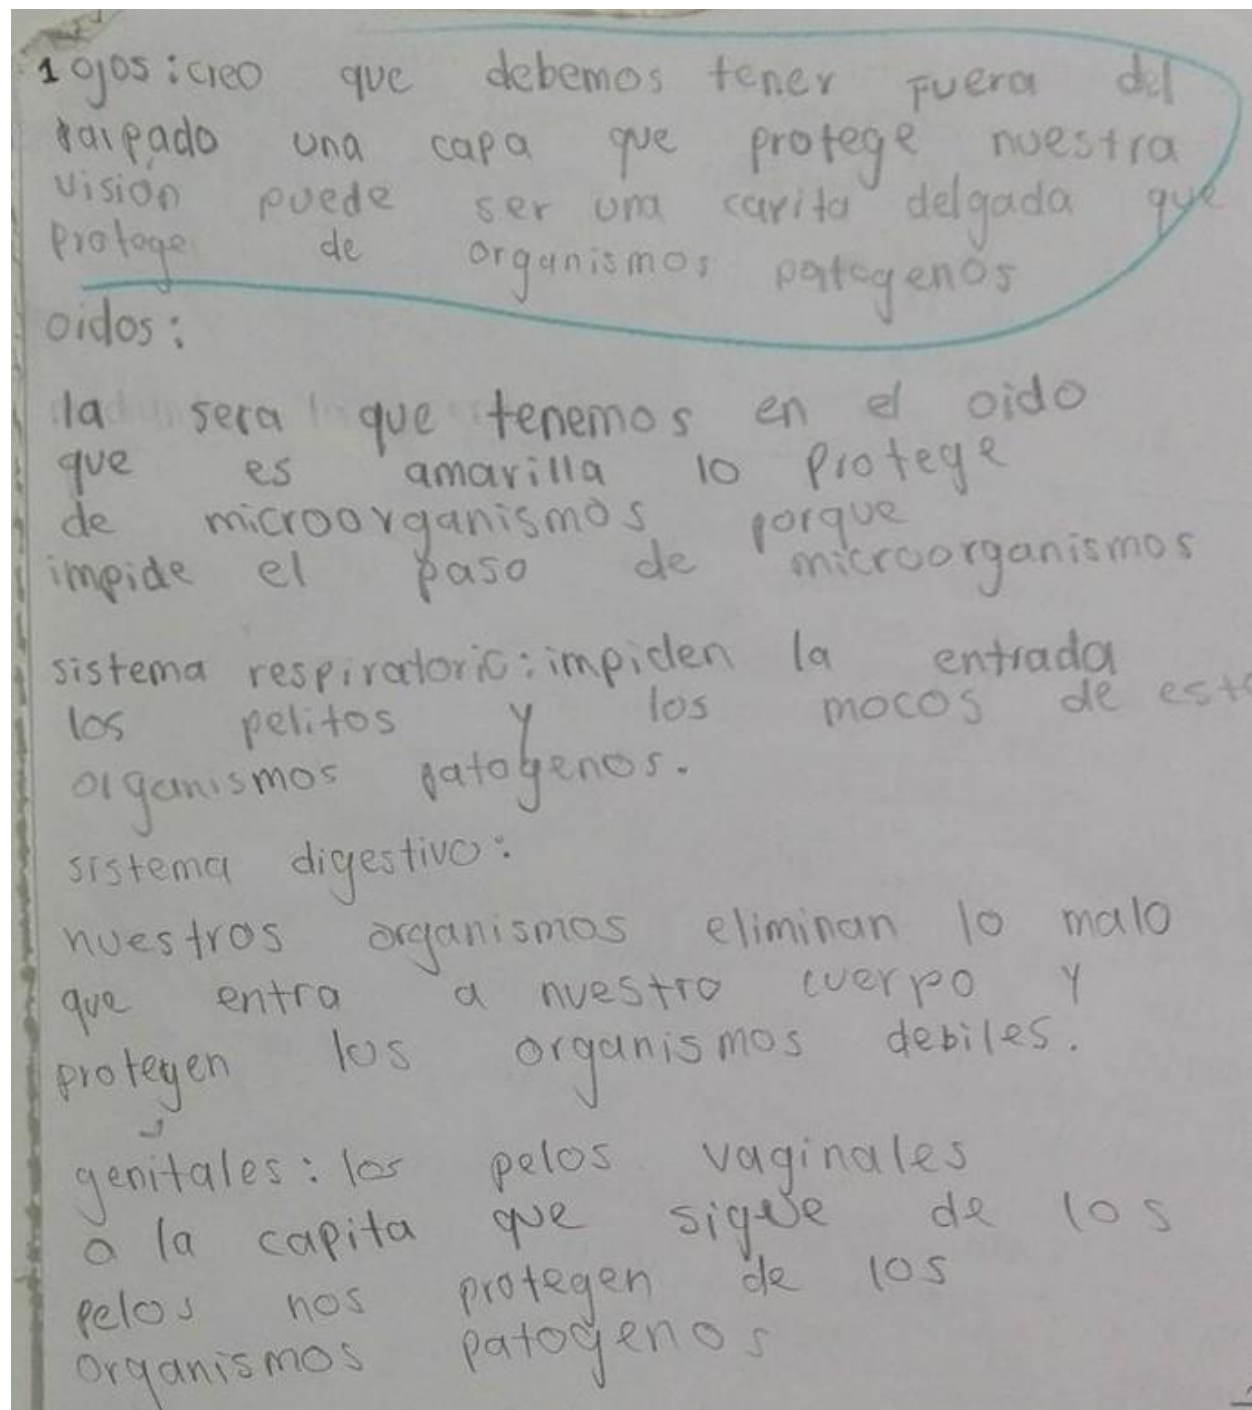 1 ojos: creo que debemos tener fuera del
parpado una capa que protege nuestra
visión puede ser una carita delgada que
protoge de organismos patogenos
oidos:
la sera que tenemos en el oido
que es amarilla lo protege
de microorganismos porque
impide el paso de microorganismos
sistema respiratorio: impiden la entrada
los pelitos y los mocos de est
organismos patogenos.
sistema digestivo:
nuestros organismos eliminan lo malo
que entra a nuestro cuerpo y
protegen los organismos debiles.
genitales: los pelos vaginales
o la capita que sigue de los
pelos nos protegen de los
organismos patogenos